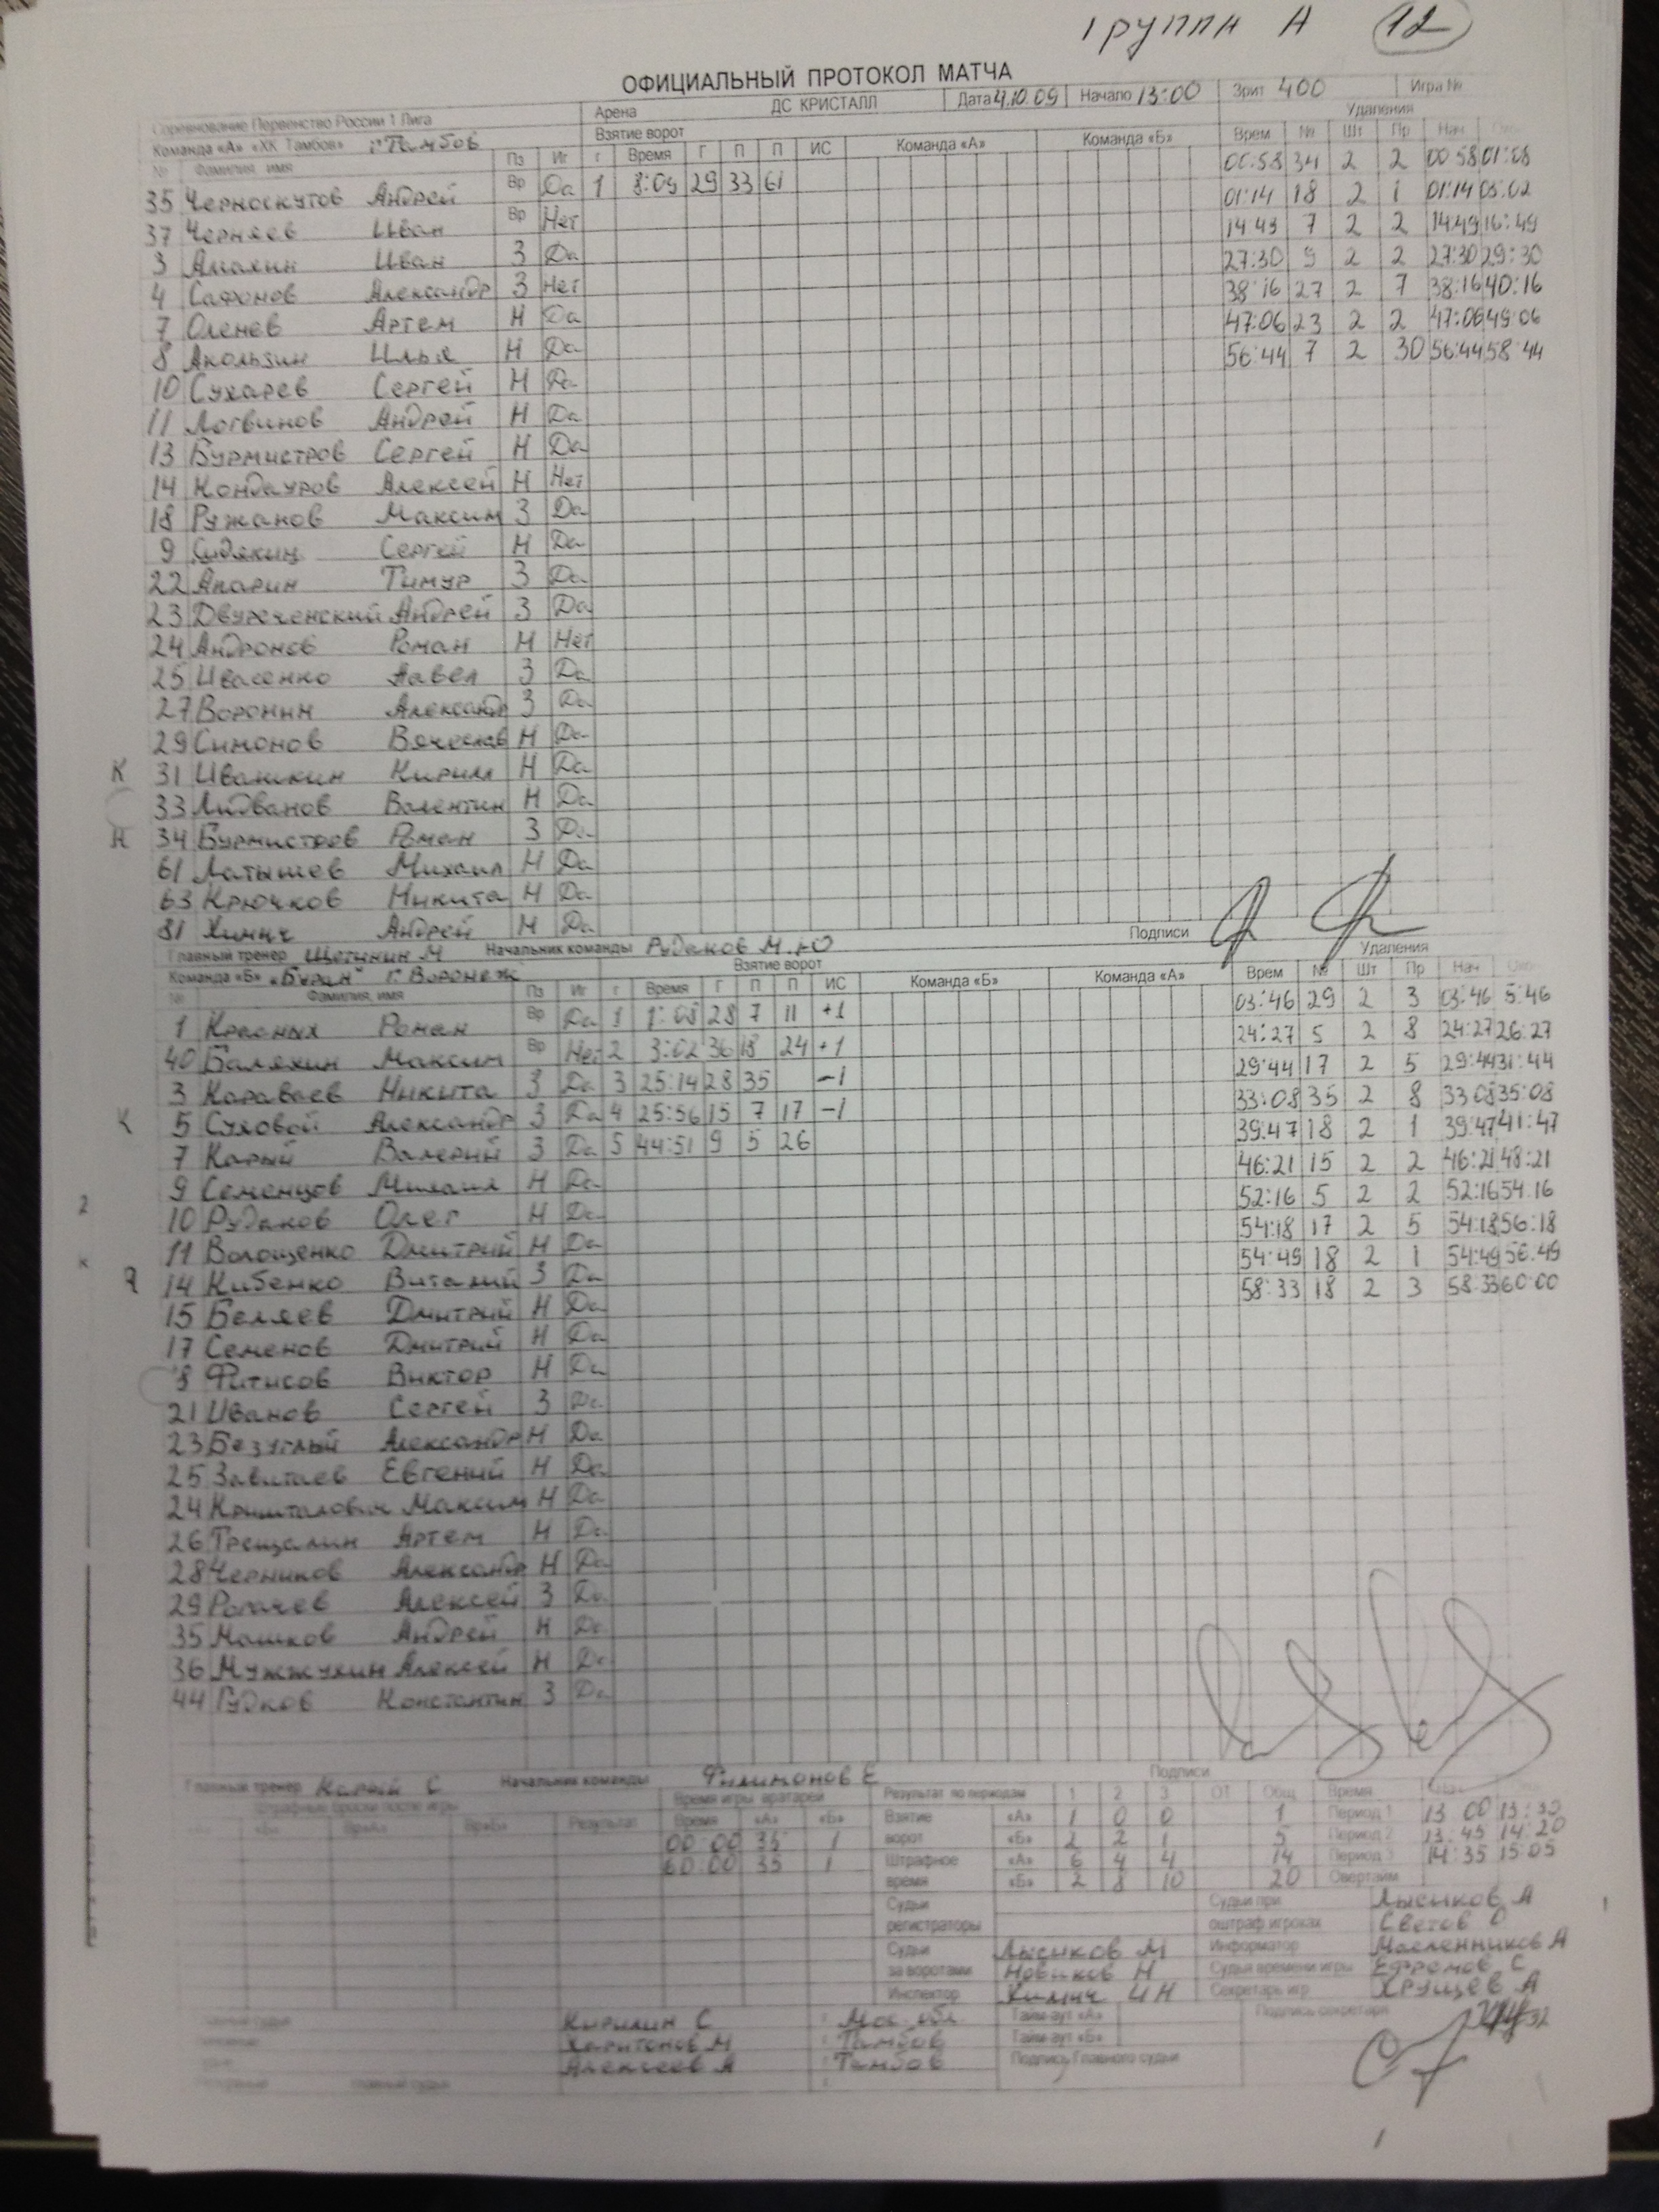 Группа А 12
ОФИЦИАЛЬНЫЙ ПРОТОКОЛ МАТЧА
Соревнование Первенство России 1 Лига Арена ДС КРИСТАЛЛ Дата 4.10.09 Начало 13:00 Зрит 400 Игра №
Команда «А» «ХК Тамбов» г. Тамбов Взятие ворот Команда «А» Команда «Б» Удаления
№ Фамилия, имя Пз Иг г Время Г П П ИС Врем № Шт Пр Нач
35 Черноскутов Андрей Вр Да 1 8:09 29 33 61 00:58 34 2 2 00 58 01:08
37 Черняев Иван Вр Нет 01:14 18 2 1 01:14 03:02
3 Иван З Да 14 49 7 2 2 14 49 16:49
4 Сафонов Александр З Нет 27:30 9 2 2 27:30 29:30
7 Оленев Артем Н Да 38:16 27 2 7 38:16 40:16
8 Акользин Илья Н Да 47:06 23 2 2 47:06 49:06
10 Сухарев Сергей Н Да 56:44 7 2 30 56:44 58:44
11 Логвинов Андрей Н Да
13 Бурмистров Сергей Н Да
14 Кондауров Алексей Н Нет
18 Ружанов Максим З Да
9 Сидякин Сергей Н Да
22 Апарин Тимур З Да
23 Двуреченский Андрей З Да
24 Андронов Роман Н Нет
25 Ивасенко Павел З Да
27 Воронин Александр З Да
29 Симонов Вячеслав Н Да
К 31 Ивашкин Кирилл Н Да
33 Лидванов Валентин Н Да
Н 34 Бурмистров Роман З Да
61 Латышев Михаил Н Да
63 Крючков Никита Н Да
81 Химич Андрей Н Да
Главный тренер Щетинин М Начальник команды Рудаков М.Ю Подписи
Команда «Б» «Буран» г. Воронеж Взятие ворот Команда «Б» Команда «А» Удаления
№ Фамилия, имя Пз Иг г Время Г П П ИС Врем № Шт Пр Нач
1 Красных Роман Вр Да 1 1:08 28 7 11 +1 03:46 29 2 3 03:46 5:46
40 Баляхин Максим Вр Нет 2 3:02 36 18 24 +1 24:27 5 2 8 24:27 26:27
3 Караваев Никита З Да 3 25:14 28 35 -1 29:44 17 2 5 29:44 31:44
К 5 Суховой Александр З Да 4 25:56 15 7 17 -1 33:08 35 2 8 33 08 35:08
7 Карый Валерий З Да 5 44:51 9 5 26 39:47 18 2 1 39:47 41:47
9 Семенцов Михаил Н Да 46:21 15 2 2 46:21 48:21
2 10 Рудаков Олег Н Да 52:16 5 2 2 52:16 54 16
11 Волощенко Дмитрий Н Да 54:18 17 2 5 54:18 56:18
14 Кибенко Виталий З Да 54:49 18 2 1 54:49 56:49
15 Беляев Дмитрий Н Да 58:33 18 2 3 58:33 60:00
17 Семенов Дмитрий Н Да
8 Фитисов Виктор Н Да
21 Иванов Сергей З Да
23 Безуглый Александр Н Да
25 Завитаев Евгений Н Да
24 Кришталович Максим Н Да
26 Трещалин Артем Н Да
28 Черников Александр Н Да
29 Рогачев Алексей З Да
35 Машков Андрей Н Да
36 Мужжухин Алексей Н Да
44 Гудков Константин З Да
Главный тренер Карый С Начальник команды Филимонов Е Подписи
Штрафные броски после игры Время игры вратарей Результат по периодам 1 2 3 ОТ Общ Время
«Б» Вр«А» Вр«Б» Результат Время «А» «Б» Взятие «А» 1 0 0 1 Период 1 13 00 13:30
00:00 35 1 ворот «Б» 2 2 1 5 Период 2 13:45 14:20
60:00 35 1 Штрафное «А» 6 4 4 14 Период 3 14:35 15:05
время «Б» 2 8 10 20 Овертайм
Судьи регистраторы Судьи при оштраф игроках Лысиков А
Светов О
Судьи за воротами Лысиков М Информатор Масленников А
Новиков Н Судья времени игры Ефремов С
Инспектор Химич И Н Секретарь игр Хрущев А
Кирилин С Мос. обл Тайм-аут «А» Подпись секретаря
Харитонов М Тамбов Тайм-аут «Б»
Алексеев А Тамбов Подпись Главного судьи